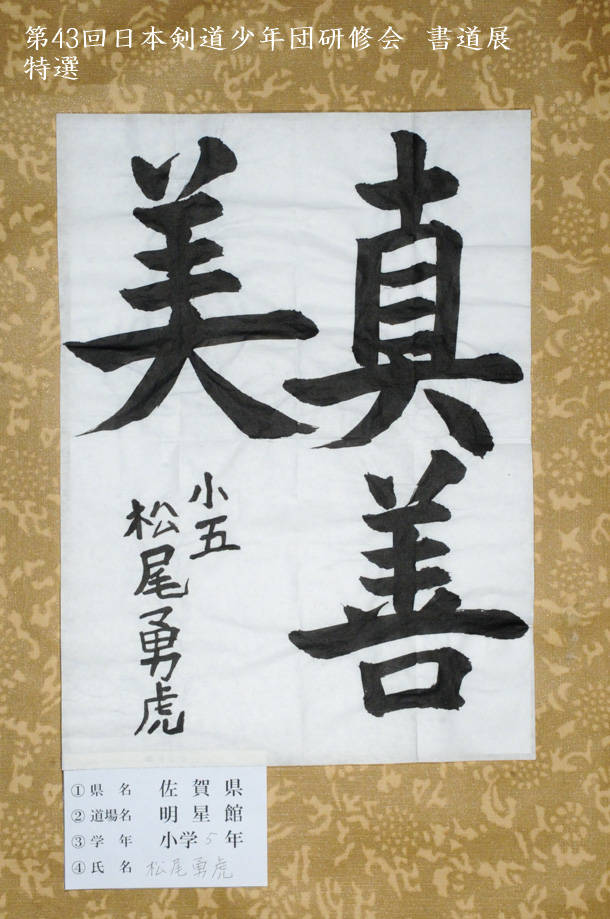 第43回日本剣道少年団研修会　書道展
特選
真善
美
小五
松尾勇虎
①県　名　佐　賀　県
②道場名　明　星　館
③学　年　小学５年
④氏　名　松尾勇虎